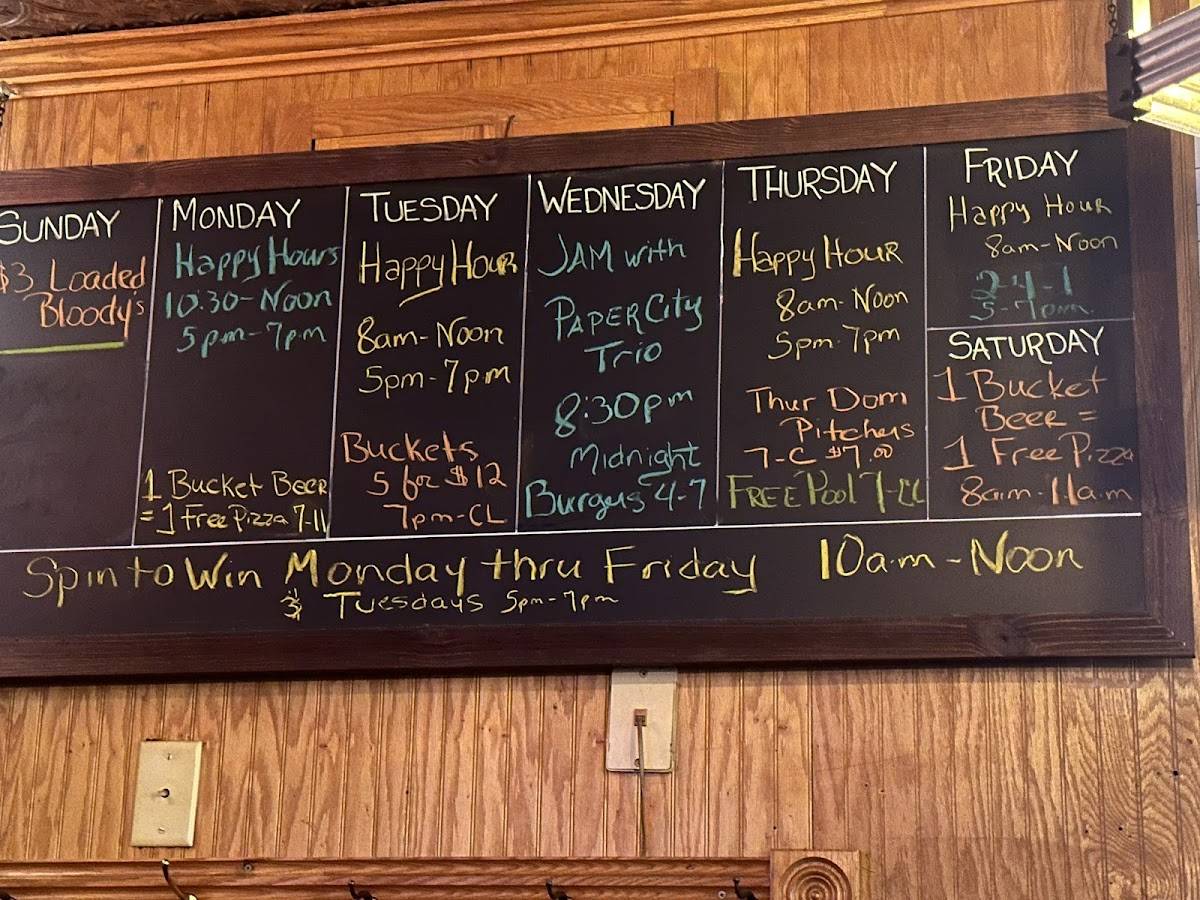 SUNDAY
$3 Loaded
Bloody's
MONDAY
Happy Hours
10:30-Noon
5pm-7pm
1 Bucket Beer
= 1 Free Pizza 7-11
TUESDAY
Happy Hour
8am-Noon
5pm-7pm
Buckets
5 for $12
7pm-CL
WEDNESDAY
JAM with
PAPER City
Trio
8:30pm
Midnight
Burgers 4-7
THURSDAY
Happy Hour
8am-Noon
5pm-7pm
Thur Dom
Pitchers
7-C $7.00
FREE Pool 7-CL
FRIDAY
Happy Hour
8am-Noon
2-4-1
5-7pm
SATURDAY
1 Bucket
Beer =
1 Free Pizza
8am-11am
Spin to Win Monday thru Friday 10am-Noon
& Tuesdays 5pm-7pm